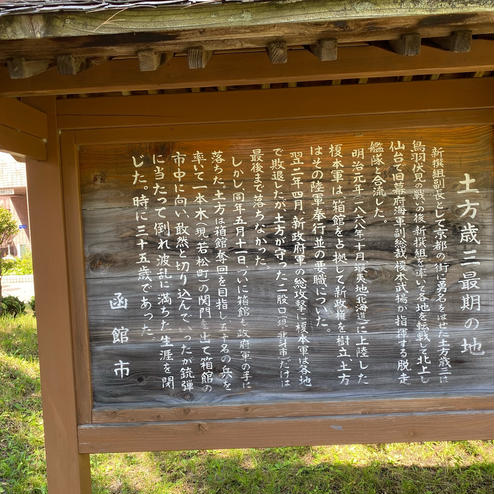 土方歳三最期の地
新撰組副長として京都の街に勇名をはせた土方歳三は
鳥羽伏見の戦いの後新撰組を率いて各地を転戦して北上し
仙台で旧幕府海軍副総裁榎本武揚が指揮する脱走
艦隊と合流した。
明治元年(一八六八年)十月蝦夷地(北海道)に上陸した
榎本軍は、箱館を占拠して新政権を樹立土方
はその陸軍奉行並の要職についた。
翌二年四月、新政府軍の総攻撃に榎本軍は各地
で敗退したが、土方が守った二股口(現大野町)だけは
最後まで落ちなかった。
しかし同年五月十一日、ついに箱館も政府軍の手に
落ち、土方は箱館奪回を目指し五十名の兵を
率いて一本木(現若松町)の関門を出て箱館の
市中に向い、敢然と切り込んでいったが銃弾
に当たって倒れ波乱に満ちた生涯を閉
じた。時に三十五歳であった。
函館市